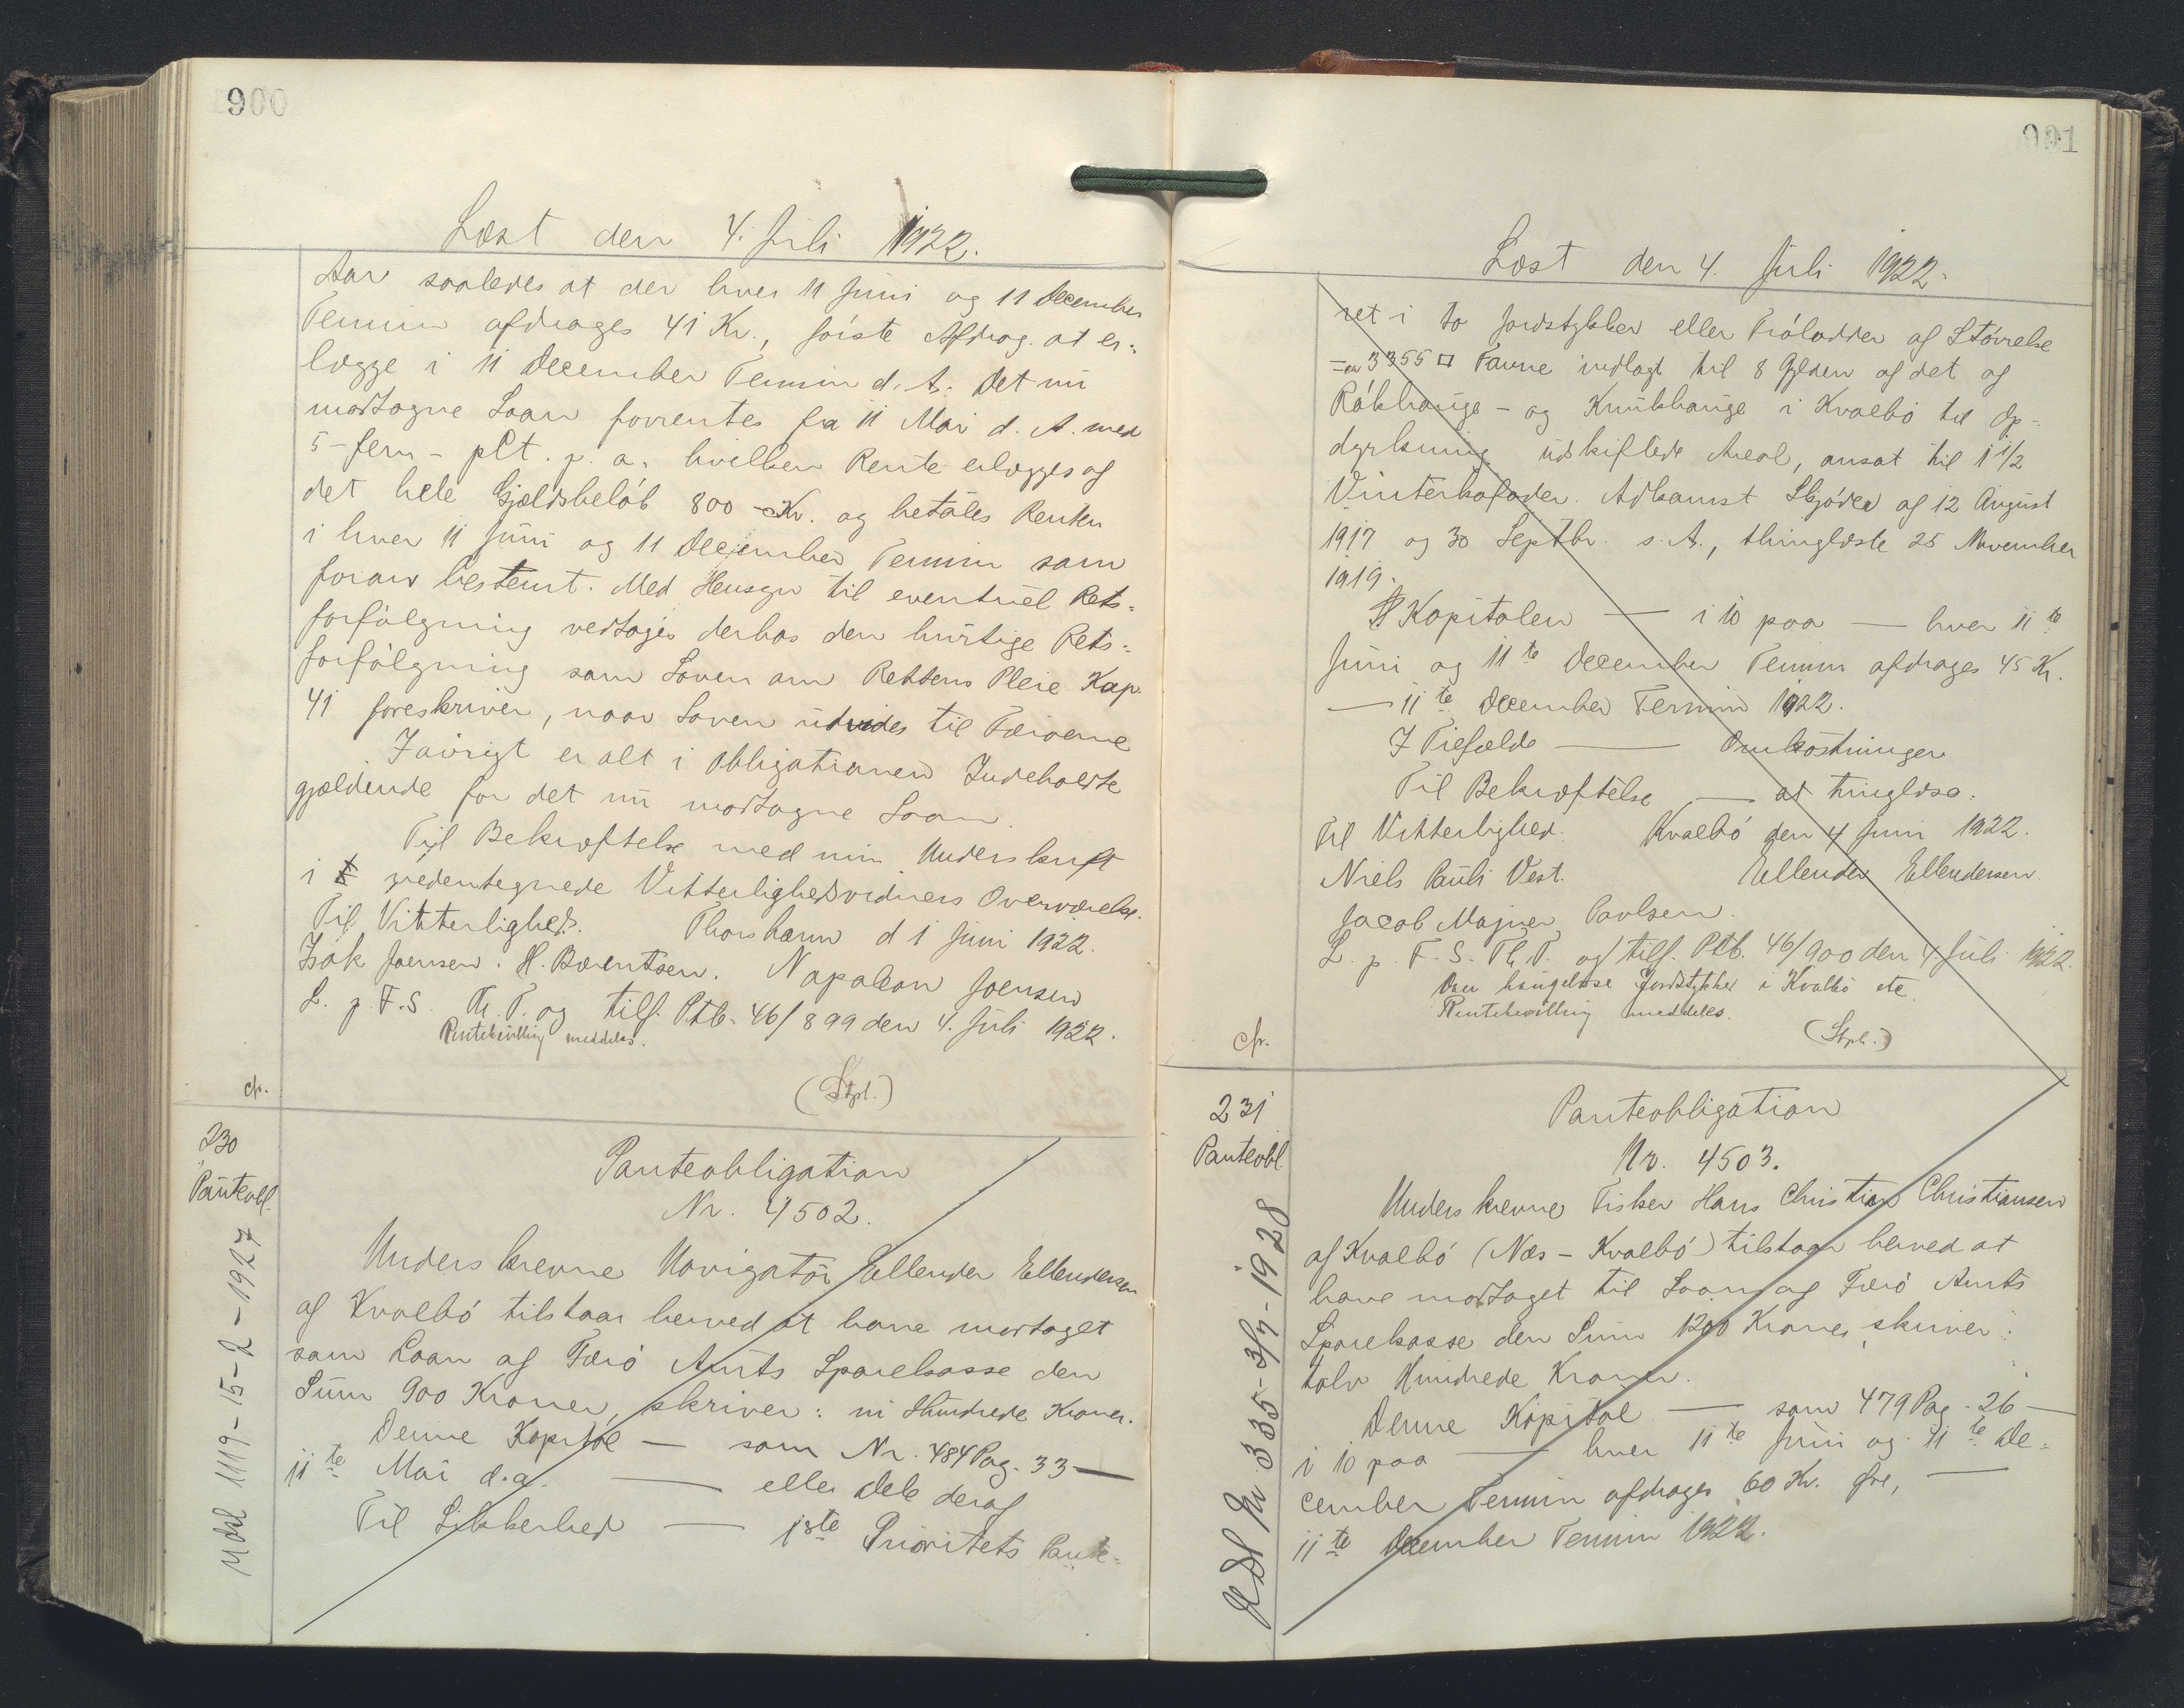 900
Læst den 4. Juli 1922.
Aar saaledes at der hver 11 Juni og 11 December
Termin afdrages 41 Kr., første Afdrag at er-
lægge i 11 December Termin d. A. Det nu
modtagne Laan forrentes fra 11 Mai d. A. med
5 - fem - pCt. p. a. hvilken Rente erlægges af
det hele Gjældsbeløb 800 - Kr. og betales Renten
i hver 11 Juni og 11 December Termin som
foran bestemt. Med Hensyn til eventuel Rets-
forfølgning vedtages derhos den hurtige Rets-
forfølgning som Loven om Rettens Pleie Kap.
41 foreskriver, naar Loven udvides til Færøerne
Iøvrigt er alt i Obligationen Indeholdte
gjældende for det nu modtagne Laan.
Til Bekræftelse med min Underskrift
i nedentegnede Vitterlighedsvidners Overværelse.
Til Vitterlighed. Thorshavn d 1 Juni 1922.
Isak Joensen. H. Bærentsen. Napoleon Joensen
L. p. F. S. Th. T. og tilf. Ptb. 46/899 den 4. Juli 1922.
Rentebevilling meddeles.
(Stpl.)
cfr.
230
Panteobl.
Udsl 1119-15-2-1927
Panteobligation
Nr. 4502.
Underskrevne Navigatør Ellender Ellendersen
af Kvalbø tilstaar herved at have modtaget
som Laan af Færø Amts Sparekasse den
Sum 900 Kroner, skriver: ni Hundrede Kroner.
Denne Kapital — som Nr. 484 Pag. 33 —
11te Mai d. a. — eller Dele deraf
Til Sikkerhed — 1ste Prioritets Pante-
901
Læst den 4. Juli 1922.
ret i to Jordstykker eller Trøladder af Størrelse
= ca 3355 □ Favne indlagt til 8 Gylden af det af
Rákhauge - og Knukhauge i Kvalbø til Op-
dyrkning udskiftede Areal, ansat til 1 1/2
Vinterkofoder. Adkomst Skjøder af 12 August
1917 og 30 Septbr. s. A., thinglæste 25 November
1919.
Kapitalen — i 10 paa — hver 11te
Juni og 11te December Termin afdrages 45 Kr.
— 11te December Termin 1922.
I Tilfælde — Omkostninger
Til Bekræftelse — at tinglæse.
Til Vitterlighed. Kvalbø den 4 Juni 1922.
Niels Pauli Vest. Ellender Ellendersen.
Jacob Majner Poulsen.
L. p. F. S. Th. T. og tilf. Ptb. 46/900 den 4. Juli 1922.
Jordstykker i Kvalbø etc.
Rentebevilling meddeles.
(Stpl.)
cfr.
231
Panteobl.
Udsl Nr 335-3/7-1928
Panteobligation
Nr. 4503.
Underskrevne Fisker Hans Christian Christiansen
af Kvalbø (Næs - Kvalbø) tilstaar herved at
have modtaget til Laan af Færø Amts
Sparekasse den Sum 1200 Kroner, skriver:
tolv Hundrede Kroner.
Denne Kapital — som 479 Pag. 26 —
i 10 paa — hver 11te Juni og 11te De-
cember Termin afdrages 60 Kr. Øre, —
11te December Termin 1922.